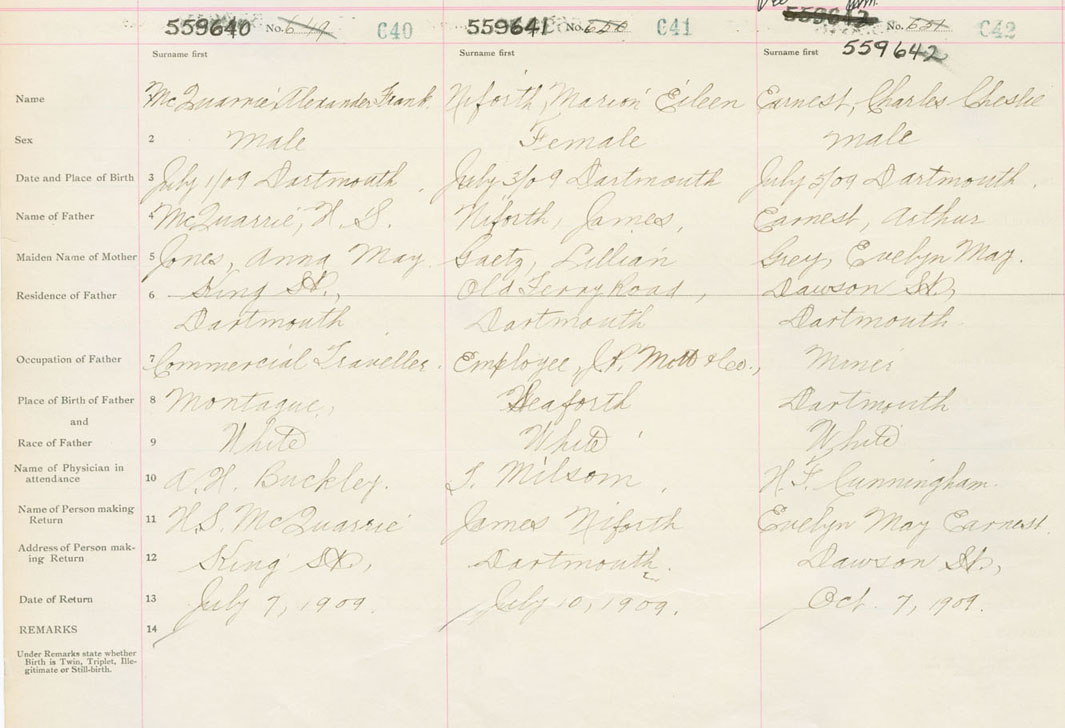 559640 No. 619 C40 559641 No. 650 C41 559642 No. 651 C42
Surname first Surname first Surname first 559642
Name McQuarrie Alexander Frank Niforth, Marion Eileen Earnest, Charles Cheslie
Sex 2 Male Female Male
Date and Place of Birth 3 July 1/09 Dartmouth. July 3/09 Dartmouth July 5/09 Dartmouth.
Name of Father 4 McQuarrie, H. S. Niforth, James, Earnest, Arthur
Maiden Name of Mother 5 Jones, Anna May. Gaetz, Lillian Grey, Evelyn May.
Residence of Father 6 King St., Old Ferry Road, Dawson St,
Dartmouth Dartmouth Dartmouth.
Occupation of Father 7 Commercial Traveller. Employee, J.P. Mott & Co., Miner
Place of Birth of Father 8 Montague, Seaforth Dartmouth
and
Race of Father 9 White White White
Name of Physician in
attendance 10 A. H. Buckley. T. Milsom. H. F. Cunningham.
Name of Person making
Return 11 H.S. McQuarrie James Niforth Evelyn May Earnest.
Address of Person mak-
ing Return 12 King St, Dartmouth. Dawson St,
Date of Return 13 July 7, 1909. July 10, 1909. Oct. 7, 1909.
REMARKS 14
Under Remarks state whether
Birth is Twin, Triplet, Ille-
gitimate or Still-birth.